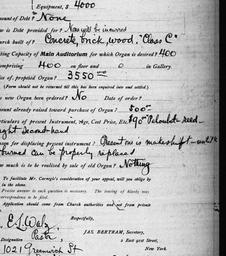 Equipment, $ 4000
ount of Debt? None
is Debt provided for? Now will be insured
urch built of? Concrete, brick, wood. "Class C"
ting Capacity of Main Auditorium for which Organ is desired? 400
omprising 400 on floor and 0 in Gallery.
ice of proposed Organ? 3550
(Form should not be returned till this has been inquired into and settled.)
new Organ been ordered? No Date of order?
ount already raised toward purchase of Organ? 500
rticulars of present Instrument, Age, Cost Price, Etc. $90 Peloubet reed
ght second-hand
son for displacing present instrument? Present one is makeshift - until
burned can be properly replaced
ow much is to be realized by sale of old Organ? Nothing
To facilitate Mr. Carnegie's consideration of your appeal, will you oblige by
in the above.
Precise answer to each question is necessary. The issuing of blanks
correspondence to be filed.
Application should come from Church authorities and not from private
Respectfully,
JAS. BERTRAM, Secretary
2 East 91st Street,
New York.
E. L. Walz
Designation Pastor
1021 Greenwich St